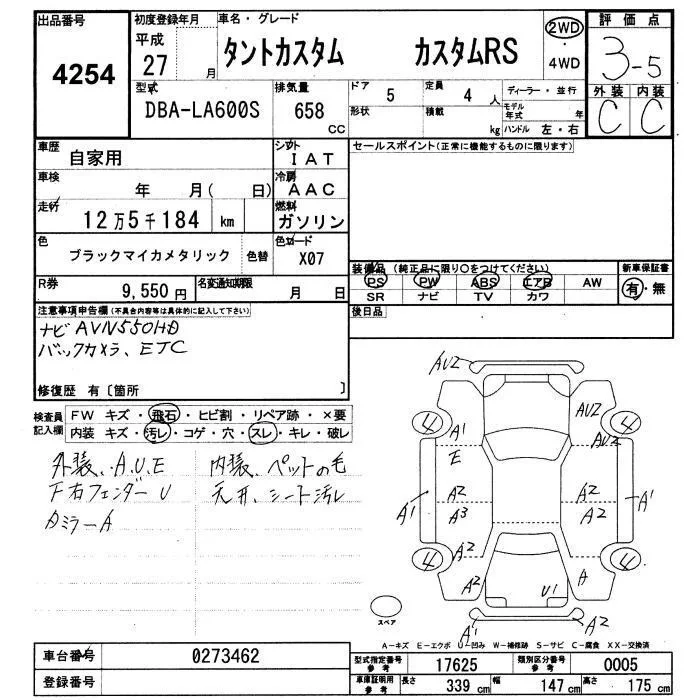 出品番号
4254
初度登録年月
平成
27 月
車名・グレード
タントカスタム カスタムRS
2WD
・
4WD
評価点
3-5
外装 内装
C C
型式
DBA-LA600S
排気量
658
CC
ドア 5
定員 4 人
形状
積載 kg
ディーラー・並行
モデル年式 年
ハンドル 左・右
車歴
自家用
シフト
IAT
車検
年 月( 日)
冷房
AAC
走行
12万5千184 km
燃料
ガソリン
色
ブラックマイカメタリック
色替
色コード
X07
R券
9,550円
名変通知期限
月 日
セールスポイント(正常に機能するものに限ります)
装備品 (純正品に限り○をつけてください)
PS PW ABS エアB AW
SR ナビ TV カワ
新車保証書
有・無
後日品
注意事項申告欄(不具合内容等は具体的に記入して下さい)
ナビ AVN550HD
バックカメラ、ETC
修復歴 有〔箇所 〕
検査員記入欄
FW キズ・飛石・ヒビ割・リペア跡・×要
内装 キズ・汚レ・コゲ・穴・スレ・キレ・破レ
外装、A.U.E
内装、ペットの毛
天井、シート汚レ
ミラーA
AUZ
4
A1
E
A2
A3
A1
A2
4
A2
AUZ
4
AUZ
A2
A2
A1
A
4
U1
A1
A2
スペア
A-キズ E-エクボ U-凹み W-補修跡 S-サビ C-腐食 XX-交換済
車台番号
0273462
登録番号
型式指定番号
参考
17625
類別区分番号
参考
0005
車庫証明用
参考
長さ 339 cm
幅 147 cm
高さ 175 cm